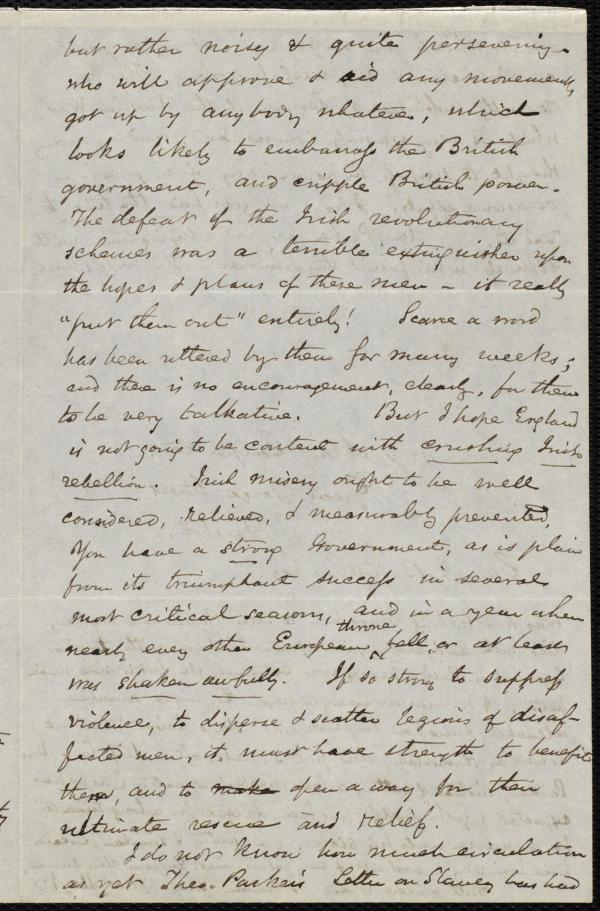 but rather noisy & quite persevering -
who will approve & aid any movements
got up by anybody whatever, which
looks likely to embarrass the British
government, and cripple British power.
The defeat of the Irish revolutionary
schemes was a terrible extinguisher upon
the hopes & plans of these men - it really
"put them out" entirely! Scarce a word
has been uttered by them for many weeks;
and there is no encouragement, clearly, for them
to be very talkative. But I hope England
is not going to be content with crushing Irish
rebellion. Irish misery ought to be well
considered, relieved, & measurably prevented.
You have a strong Government, as is plain
from its triumphant success in several
most critical seasons, and in a year when
throne
nearly every other European fell, or at least
was shaken awfully. If so strong to suppress
violence, to disperse & scatter legions of disaf-
fected men, it must have strength to benefit
them, and to make open a way for their
ultimate rescue and relief.
I do not know how much circulation
as yet Theo. Parker's Letter on Slavery has had